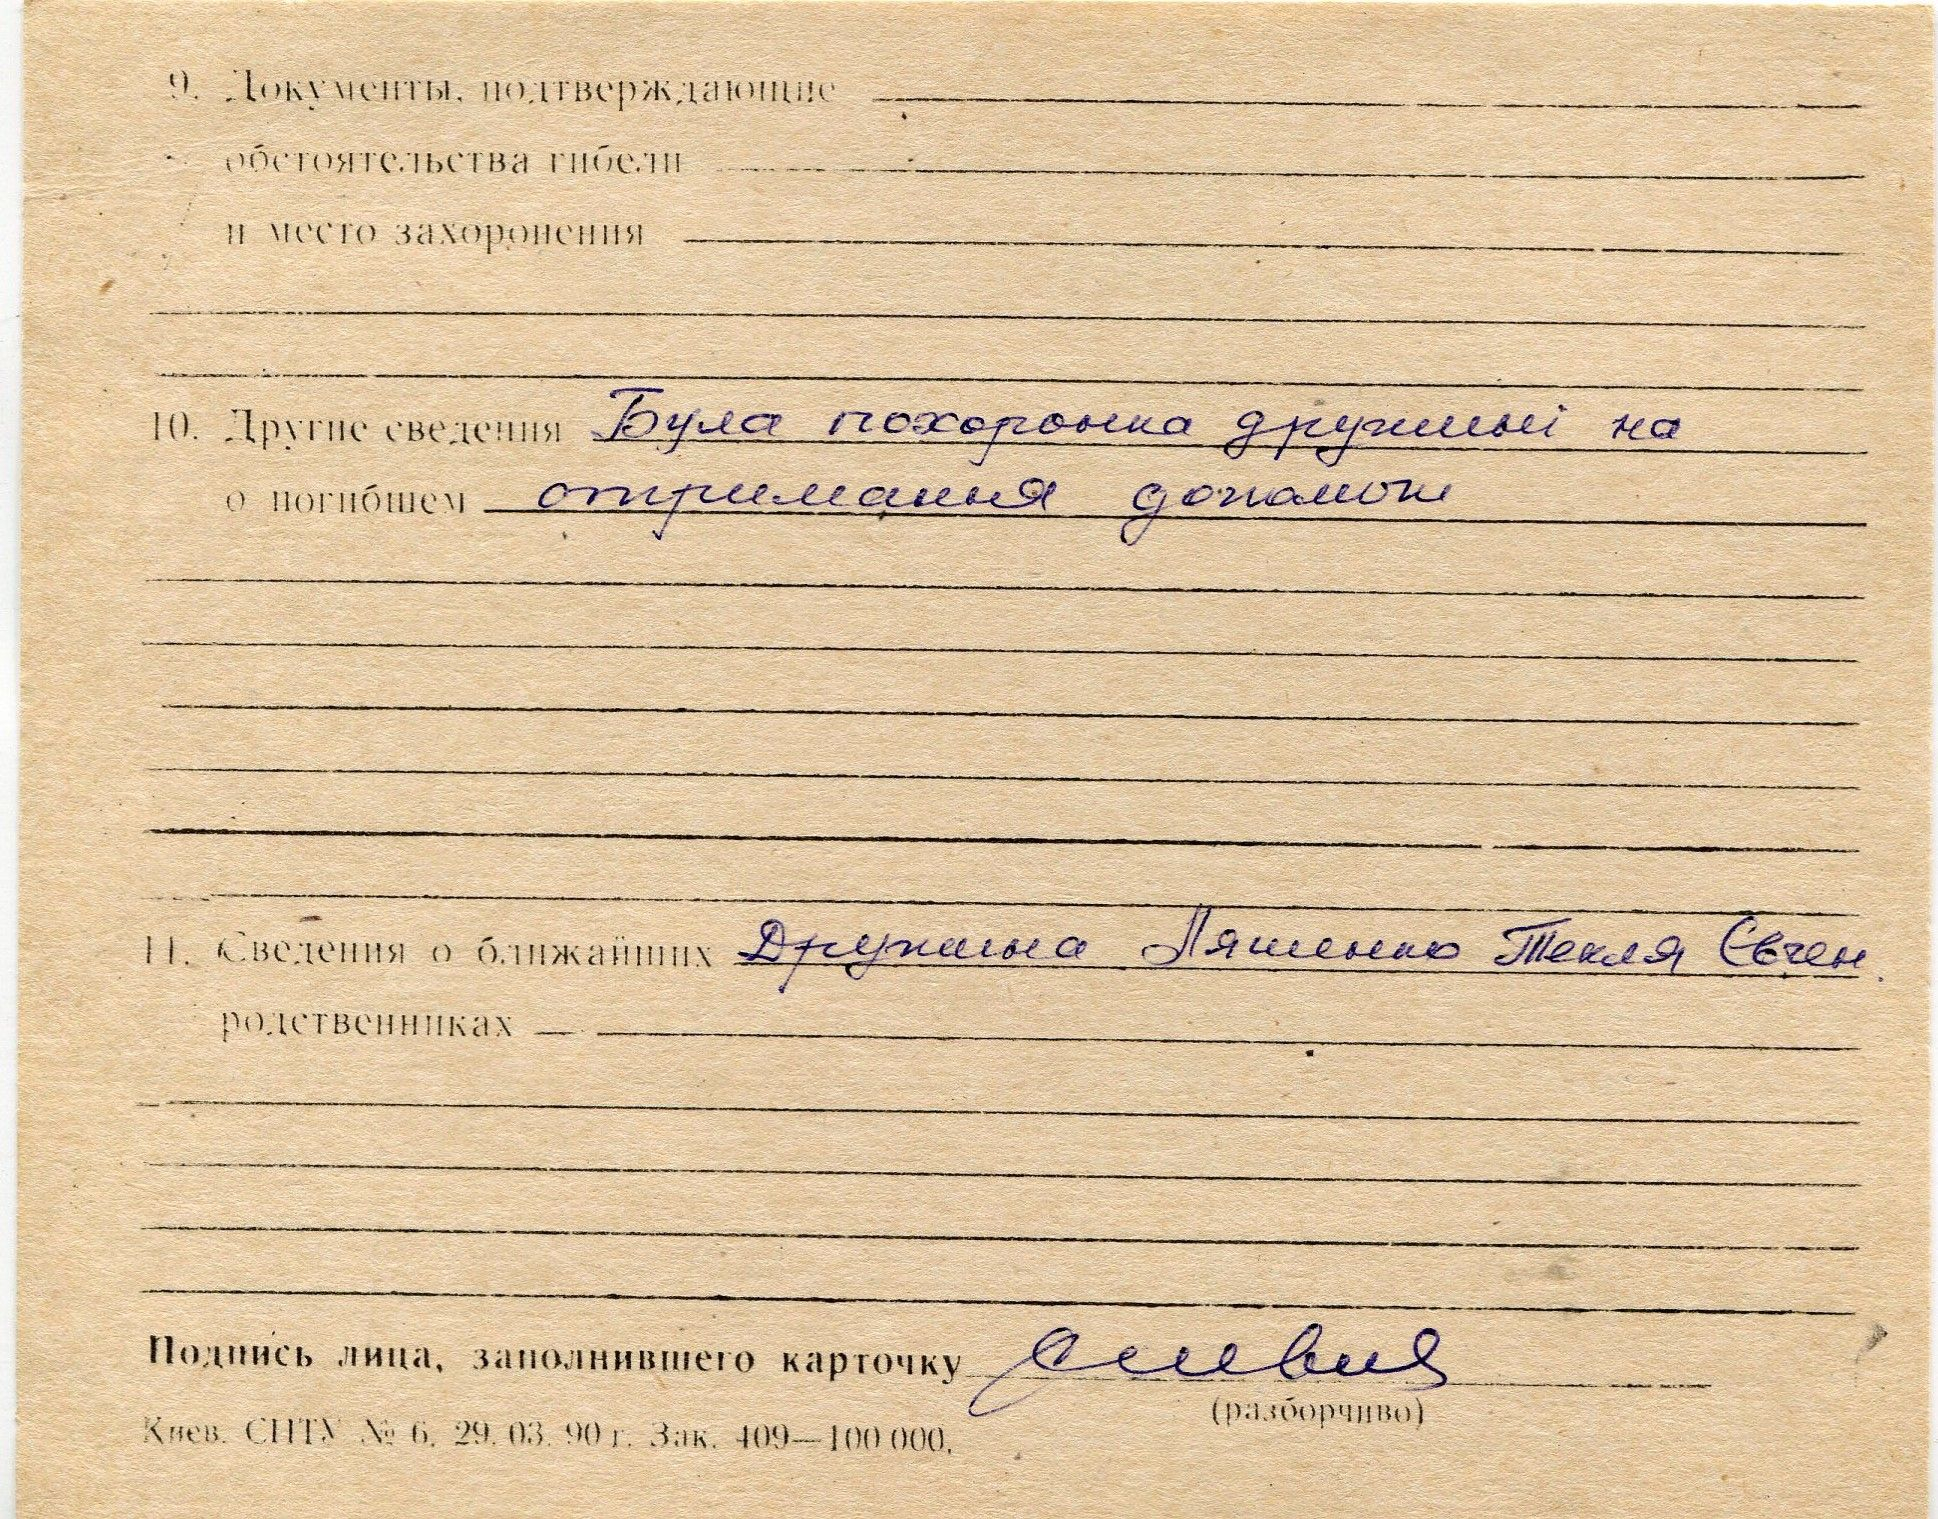 9. Документы, подтверждающие
обстоятельства гибели
и место захоронения
10. Другие сведения Була похоронка дружині на
о погибшем отримання допомоги
11. Сведения о ближайших Дружина Ляшенко Текля Євген.
родственниках
Подпись лица, заполнившего карточку
(разборчиво)
Киев. СПТУ № 6. 29. 03. 90 г. Зак. 409—100 000.